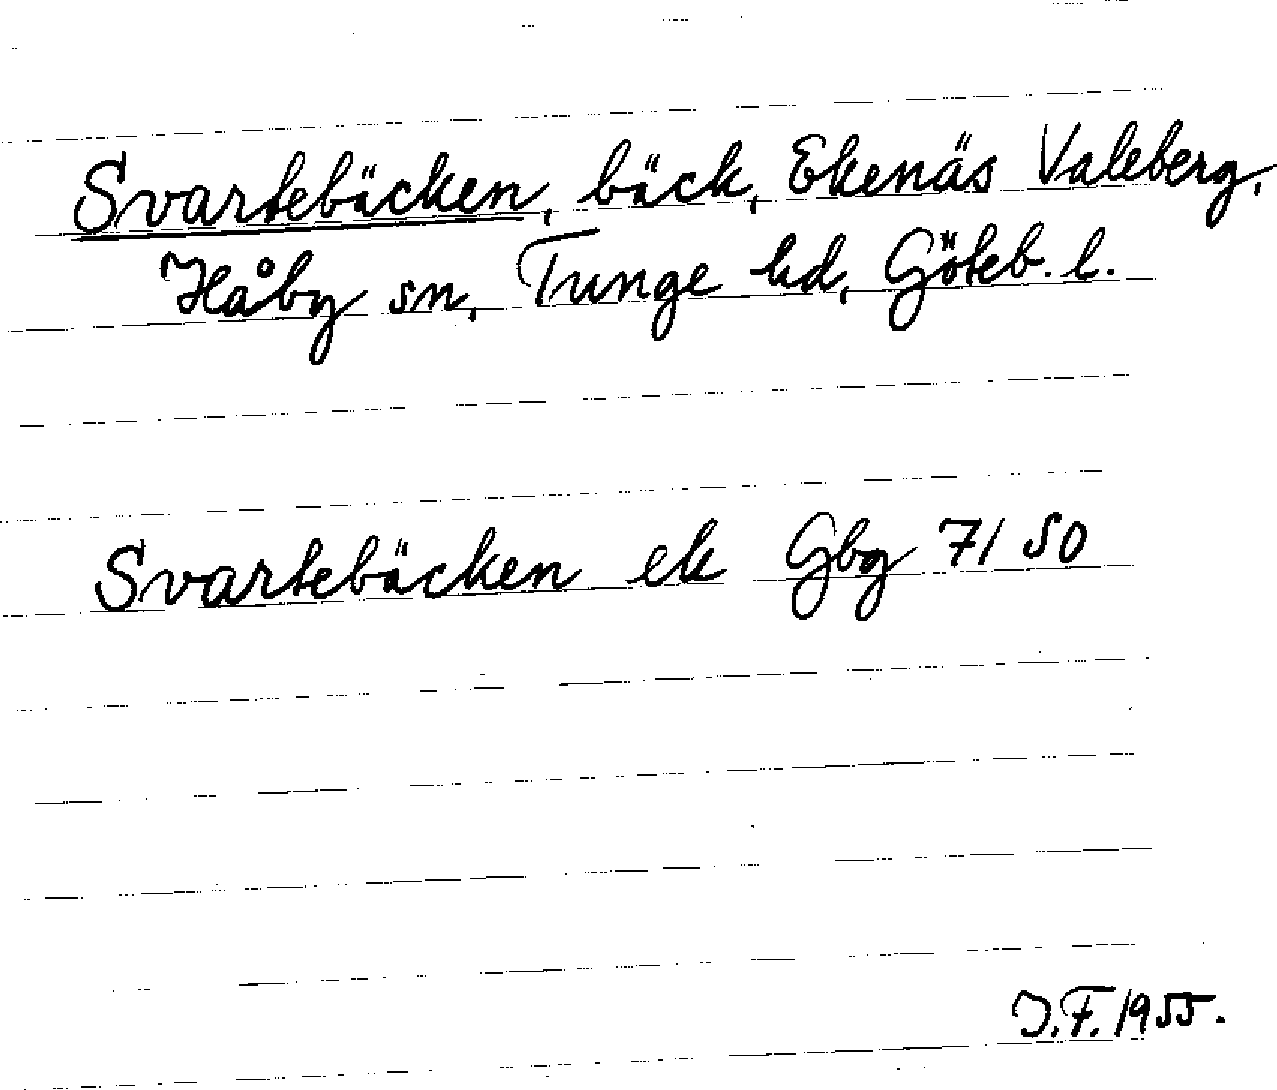 Svartebäcken, bäck, Ekenäs Valeberg,
Håby sn, Tunge hd, Göteb. l.
Svartebäcken ek Gbg 71 50
J.F. 1955.